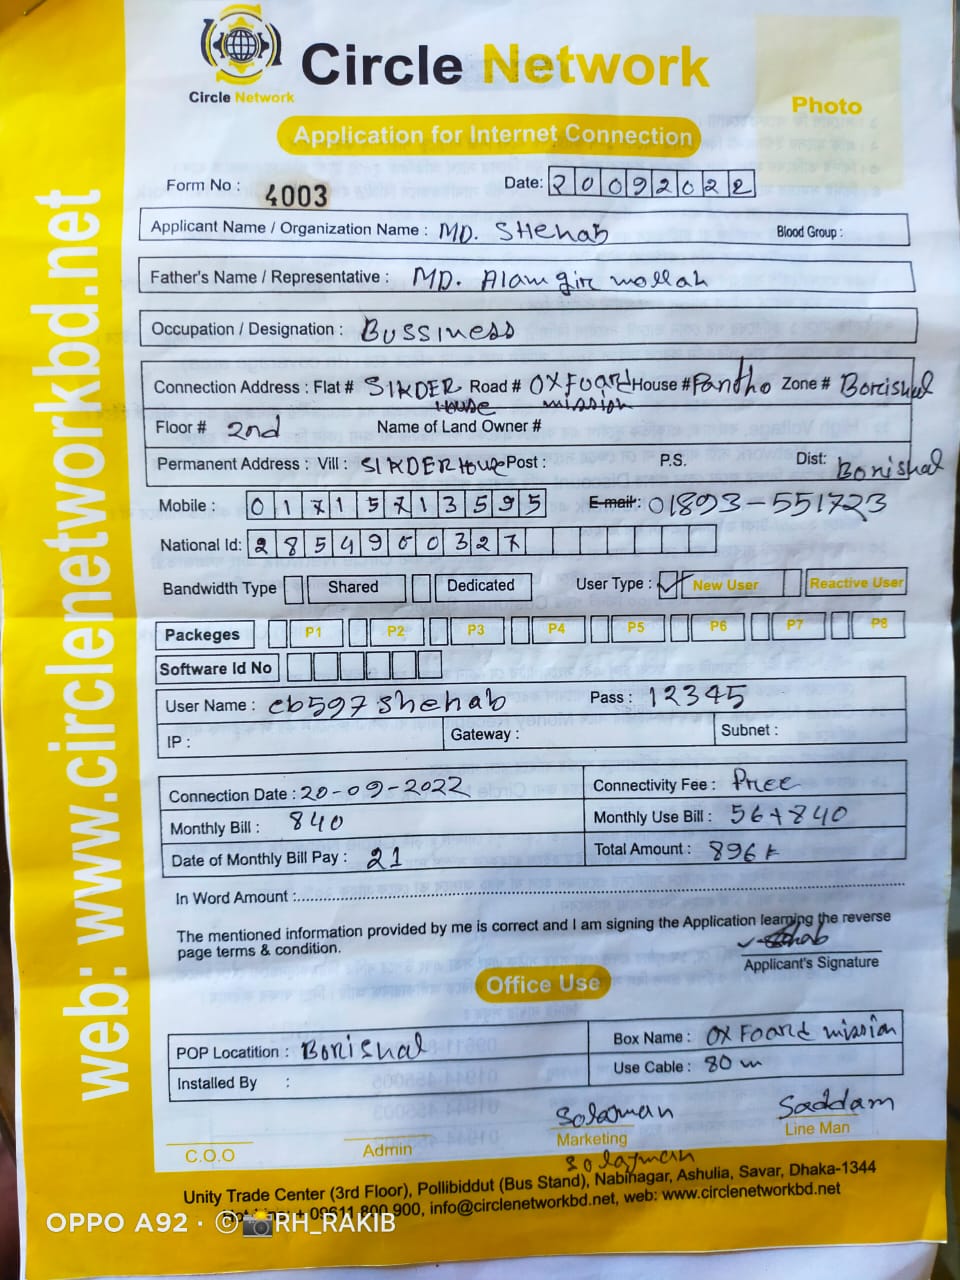 Circle Network
Circle Network
Photo
Application for Internet Connection
Form No : 4003
Date: 20092022
Applicant Name / Organization Name : MD. SHehab
Blood Group :
Father's Name / Representative : MD. Alamgir mollah
Occupation / Designation : Bussiness
Connection Address : Flat # SIKDER House Road # OXFoard mission House # Pantho Zone # Borishal
Floor # 2nd Name of Land Owner #
Permanent Address : Vill : SIKDER House Post : P.S. Dist: Borishal
Mobile : 01715713595 E-mail: 01893-551723
National Id: 2854900327
Bandwidth Type Shared Dedicated User Type : ✓ New User Reactive User
Packeges P1 P2 P3 P4 P5 P6 P7 P8
Software Id No
User Name : cb597shehab Pass : 12345
IP : Gateway : Subnet :
Connection Date : 20-09-2022 Connectivity Fee : Free
Monthly Bill : 840 Monthly Use Bill : 56+840
Date of Monthly Bill Pay : 21 Total Amount : 896
In Word Amount :
The mentioned information provided by me is correct and I am signing the Application learning the reverse
page terms & condition.
Shehab
Applicant's Signature
Office Use
POP Locatition : Borishal Box Name : OXFoard mission
Installed By : Use Cable : 80 m
Solaman Saddam
C.O.O Admin Marketing Line Man
Solayman
Unity Trade Center (3rd Floor), Pollibiddut (Bus Stand), Nabinagar, Ashulia, Savar, Dhaka-1344
09611 800 900, info@circlenetworkbd.net, web: www.circlenetworkbd.net
web: www.circlenetworkbd.net
OPPO A92 · © RH_RAKIB